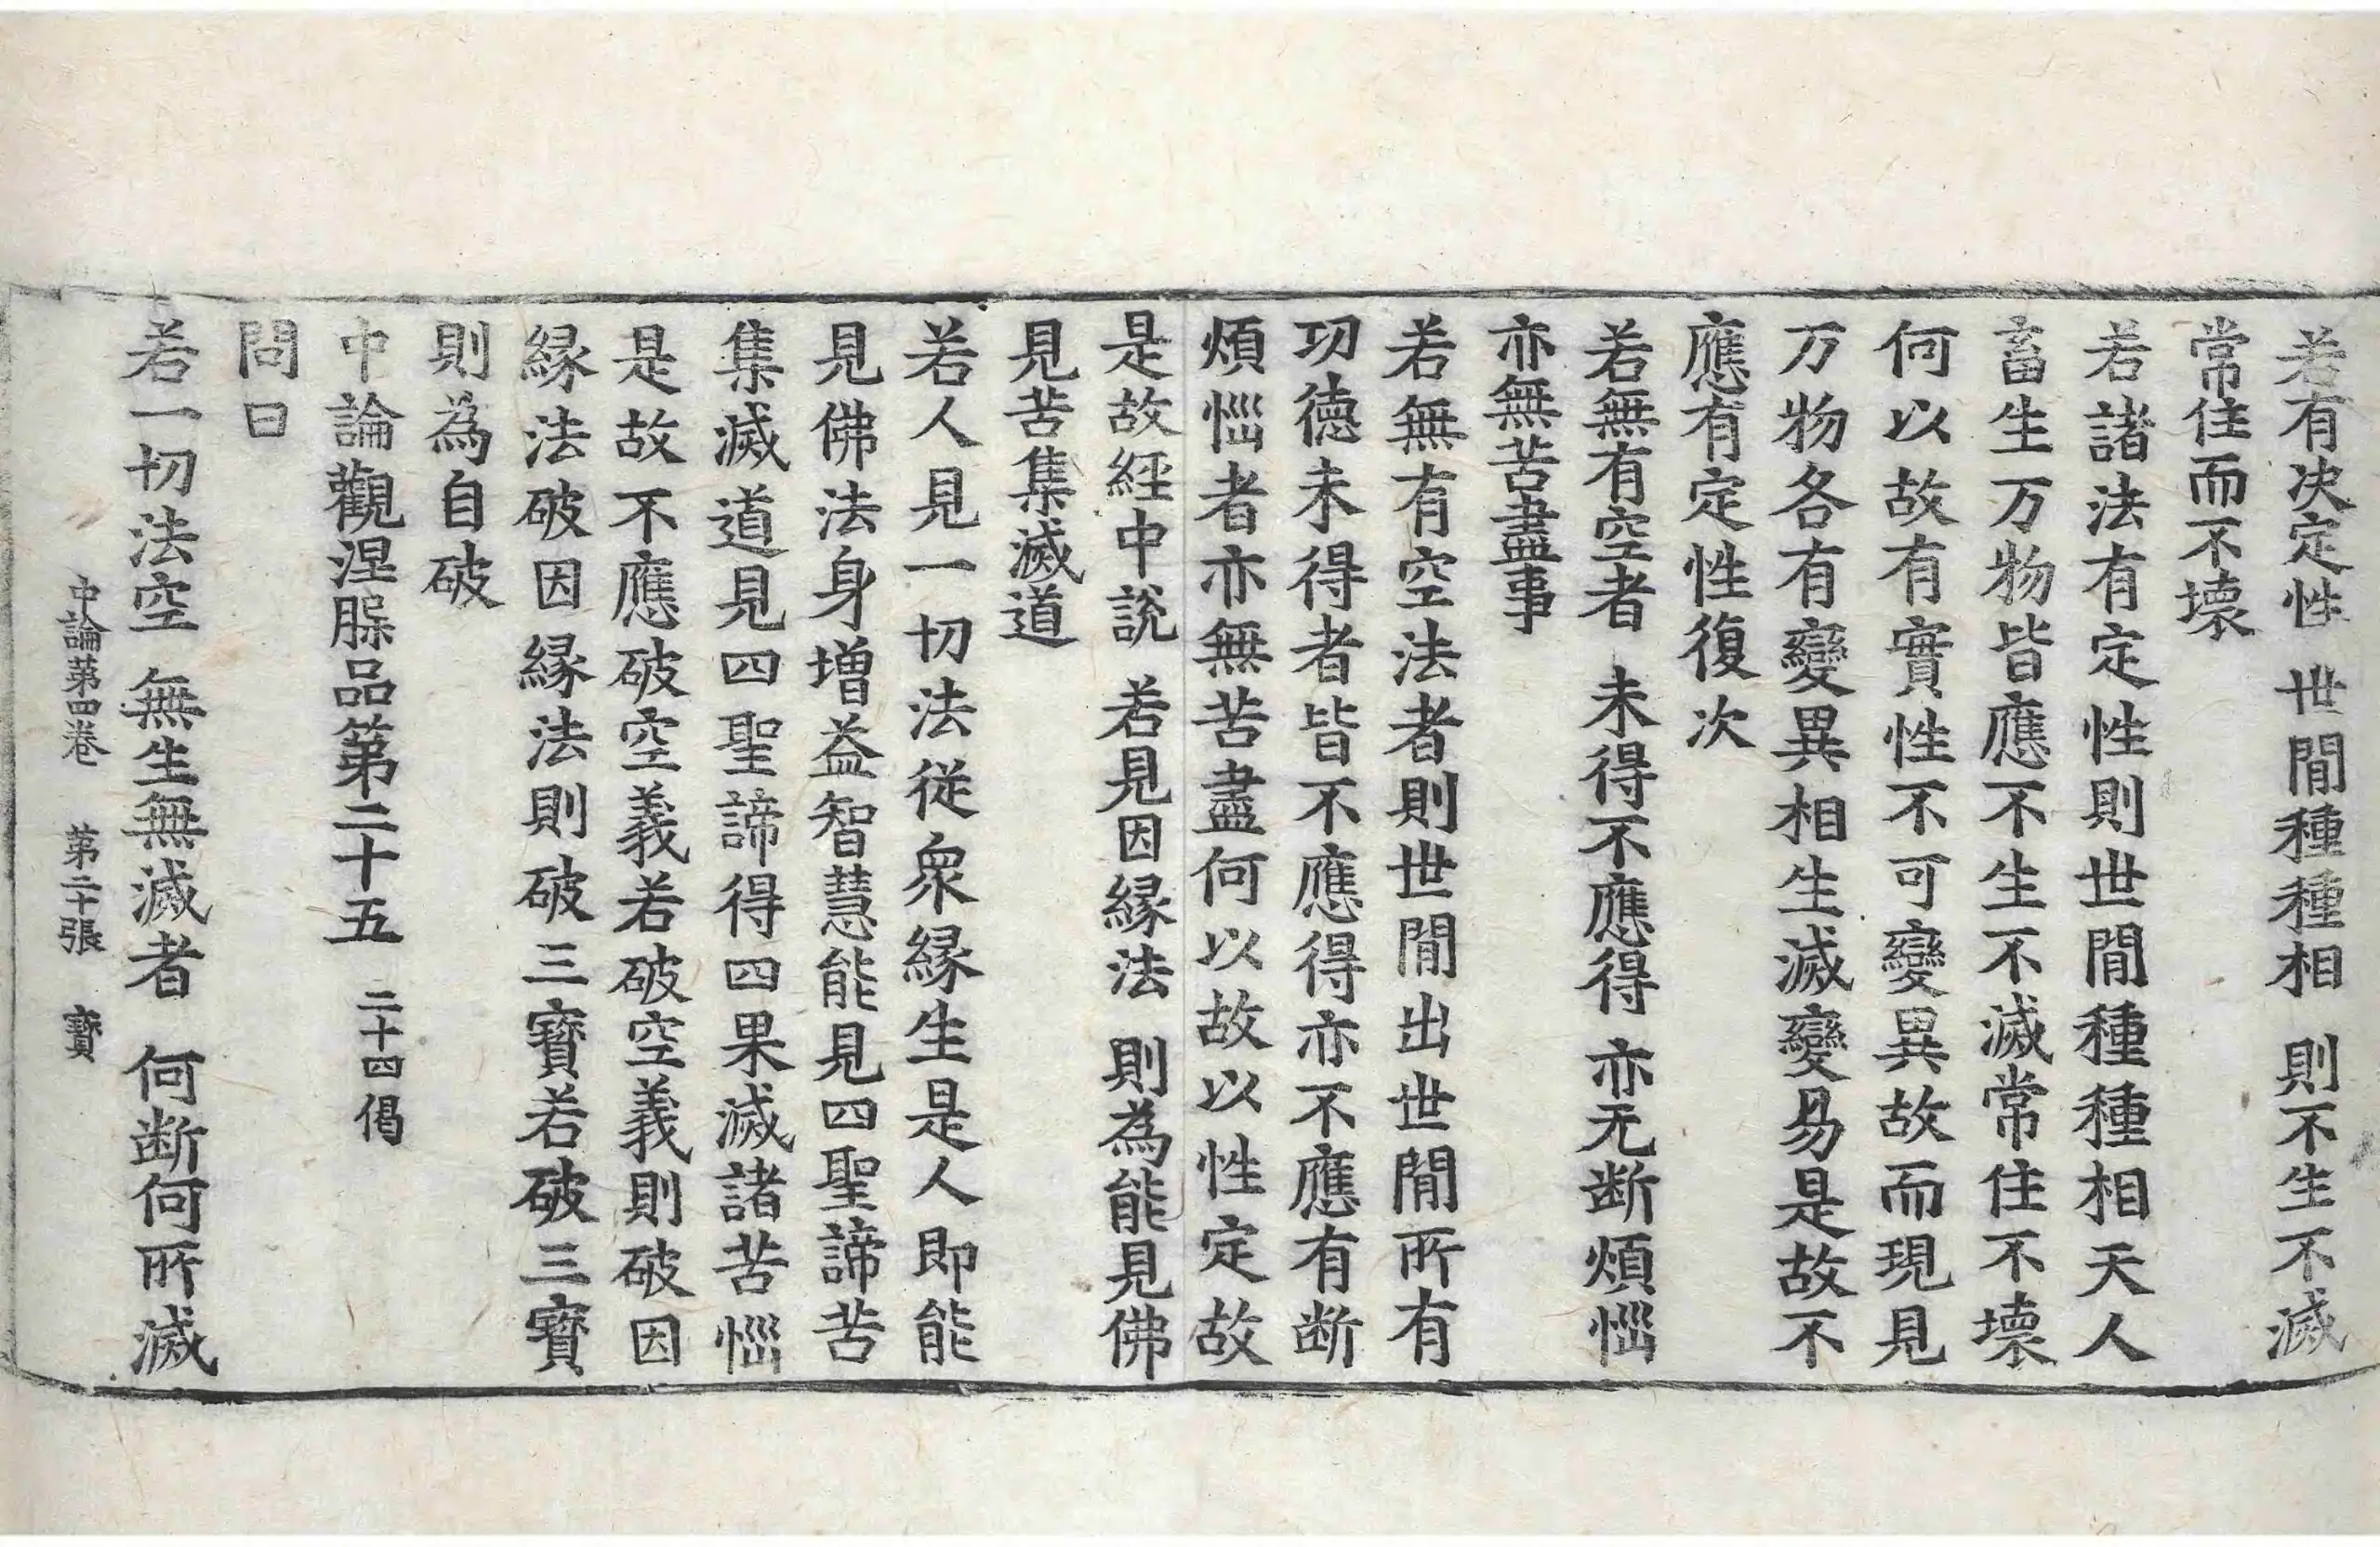 若有决定性　世間種種相　則不生不滅
常住而不壞
若諸法有定性則世間種種相天人
畜生万物皆應不生不滅常住不壞
何以故有實性不可變異故而現見
万物各有變異相生滅變易是故不
應有定性復次
若無有空者　未得不應得　亦无断煩惱
亦無苦盡事
若無有空法者則世間出世間所有
功德未得者皆不應得亦不應有断
煩惱者亦無苦盡何以故以性定故
是故經中說　若見因緣法　則為能見佛
見苦集滅道
若人見一切法從衆緣生是人即能
見佛法身增益智慧能見四聖諦苦
集滅道見四聖諦得四果滅諸苦惱
是故不應破空義若破空義則破因
緣法破因緣法則破三寶若破三寶
則為自破
中論觀涅槃品第二十五　二十四偈
問曰
若一切法空　無生無滅者　何断何所滅
中論第四卷　第二十張　寶